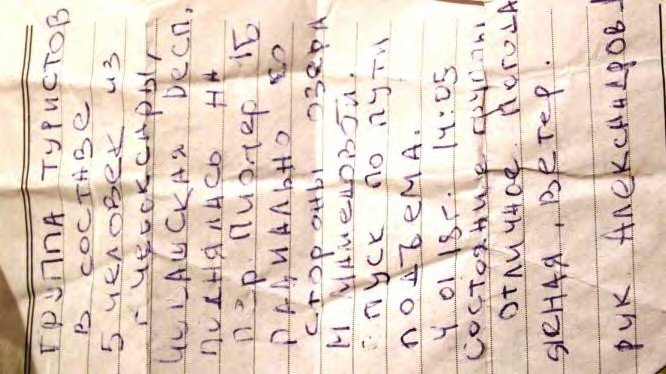 ГРУППА ТУРИСТОВ
В СОСТАВЕ
5 ЧЕЛОВЕК ИЗ
г. ЧЕБОКСАРЫ
ЧУВАШСКАЯ РЕСП.
ПОДНЯЛАСЬ НА
ПЕР. ПИОНЕР 1Б
РАДИАЛЬНО СО
СТОРОНЫ ОЗЕРА
СПУСК ПО ПУТИ
ПОДЪЕМА.
4 01 18г. 14:05
СОСТОЯНИЕ ГРУППЫ
ОТЛИЧНОЕ ПОГОДА
ЯСНАЯ, ВЕТЕР.
РУК АЛЕКСАНДРОВ